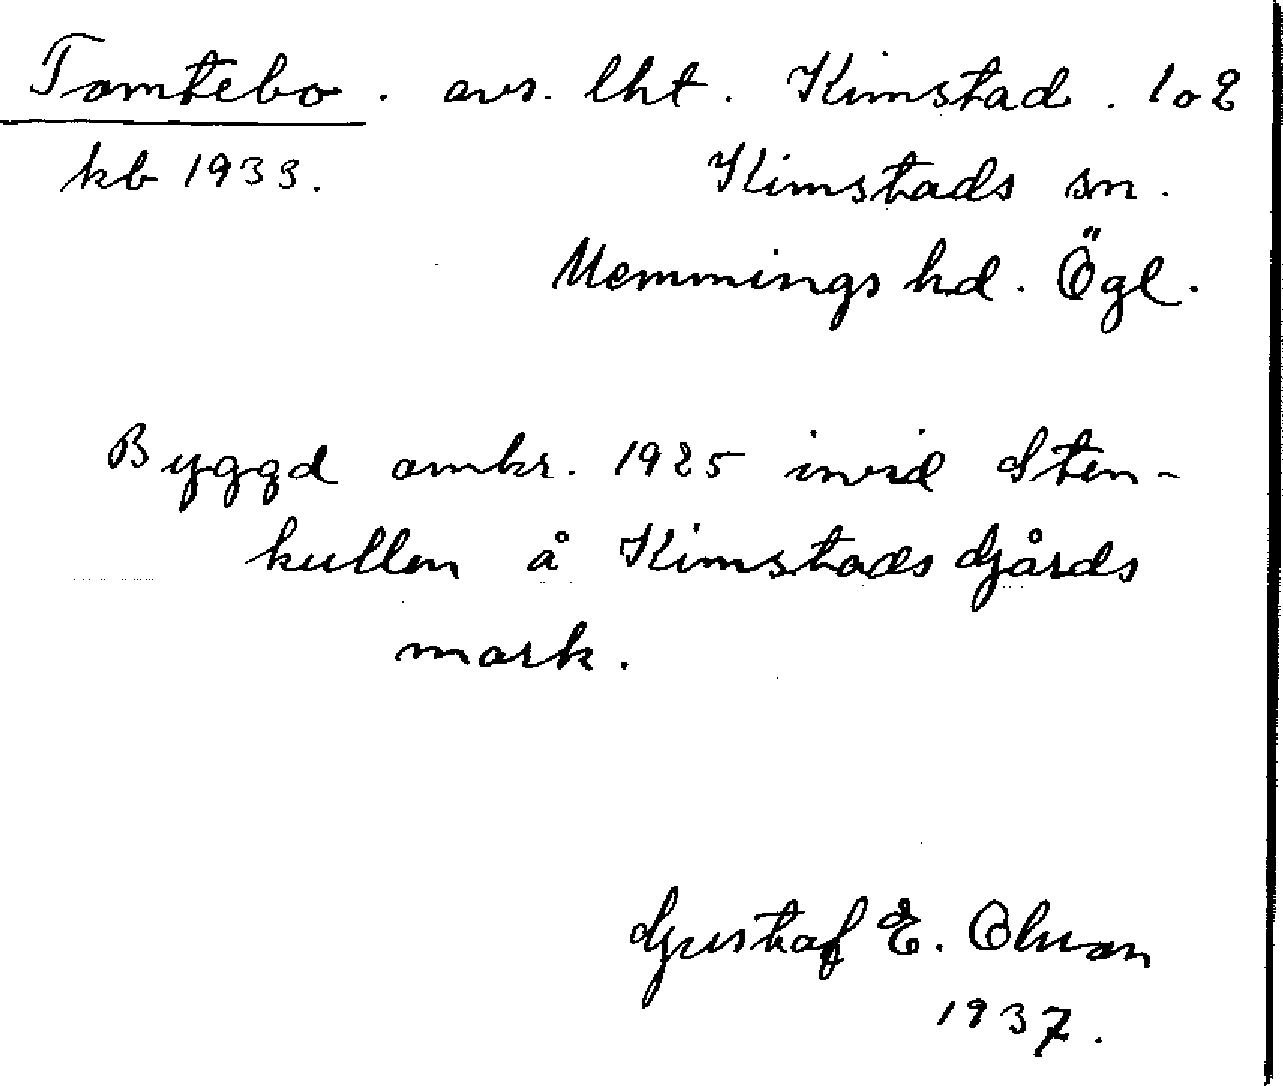 Tomtebo. avs. lht. Kimstad. 1 o 2
kb 1933. Kimstads sn.
Memmings hd. Ögl.
Byggd omkr. 1925 invid Sten-
kullen å Kimstads Gjårds
mark.
Gustaf E. Olsson
1937.